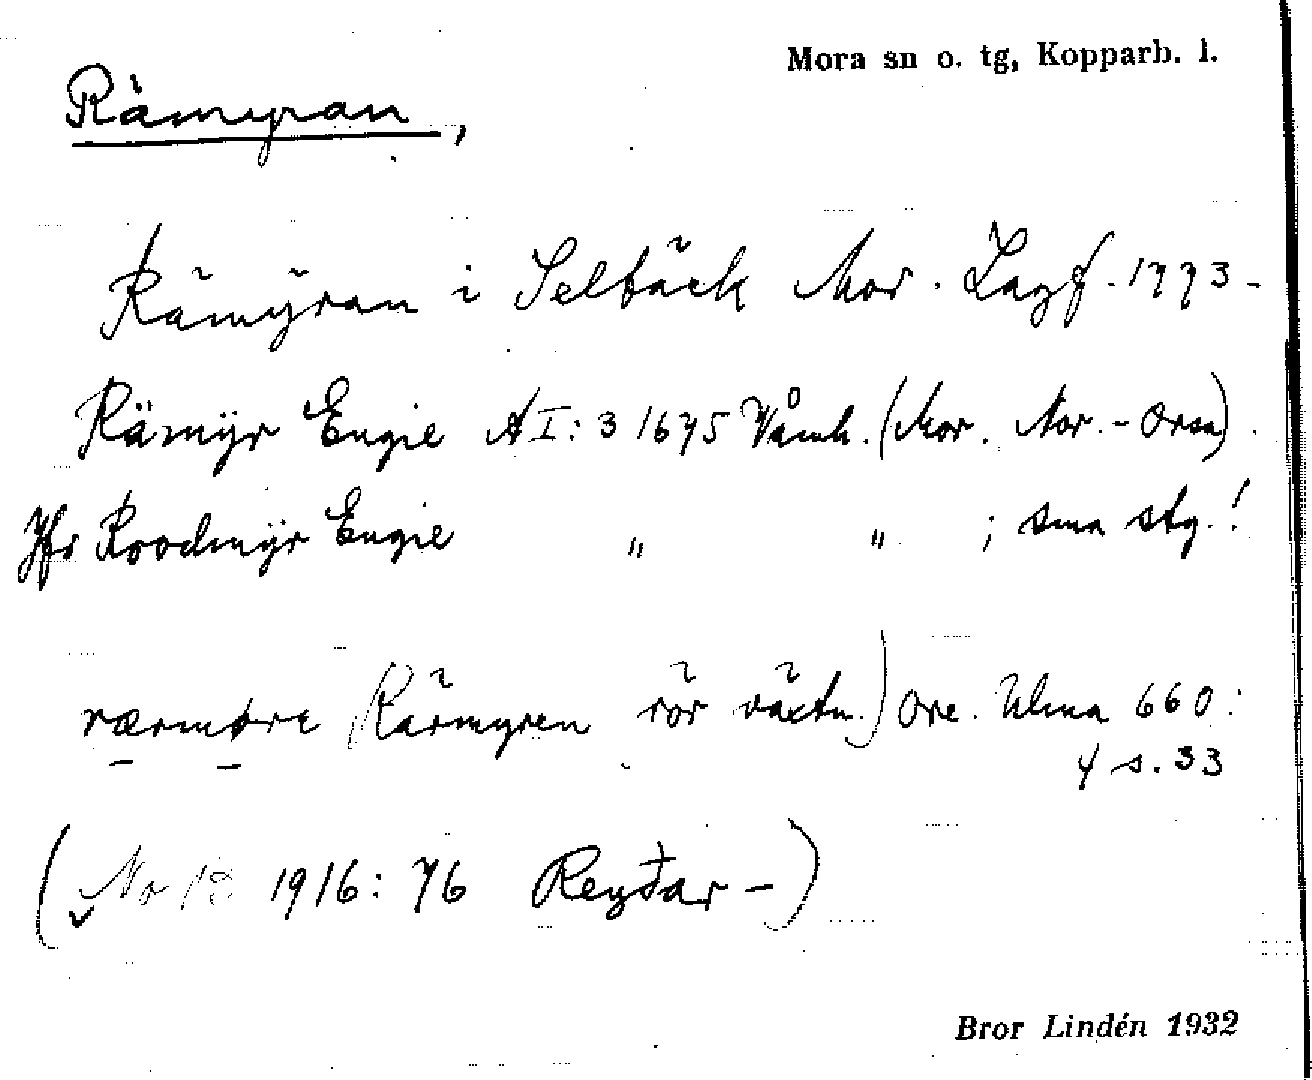 Mora sn o. tg, Kopparb. l.
Rämyran,
Rämyran i Selbäck Mor. Lagf. 1773-
Rämÿr Engie A I: 3 1675 Våmh. (Mor. Mor.-Orsa).
Jfr Roodmÿr Engie " " ; sma stg.!
rærmøre (Rärmyren rör växtn.) Ore. Ulma 660:
4 s. 33
(NoB 1916: 76 Reyðar-)
Bror Lindén 1932